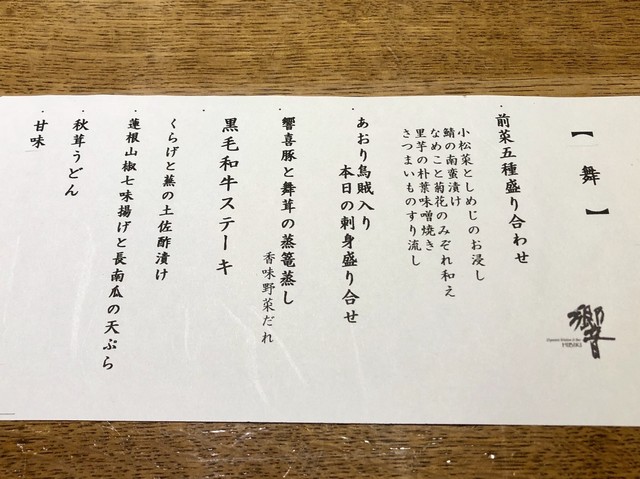 【 舞 】
・前菜五種盛り合わせ
小松菜としめじのお浸し
鯖の南蛮漬け
なめこと菊花のみぞれ和え
里芋の朴葉味噌焼き
さつまいものすり流し
・あおり烏賊入り
本日の刺身盛り合せ
・響喜豚と舞茸の蒸篭蒸し
香味野菜だれ
・黒毛和牛ステーキ
・くらげと蕪の土佐酢漬け
・蓮根山椒七味揚げと長南瓜の天ぷら
・秋茸うどん
・甘味
響
HIBIKI